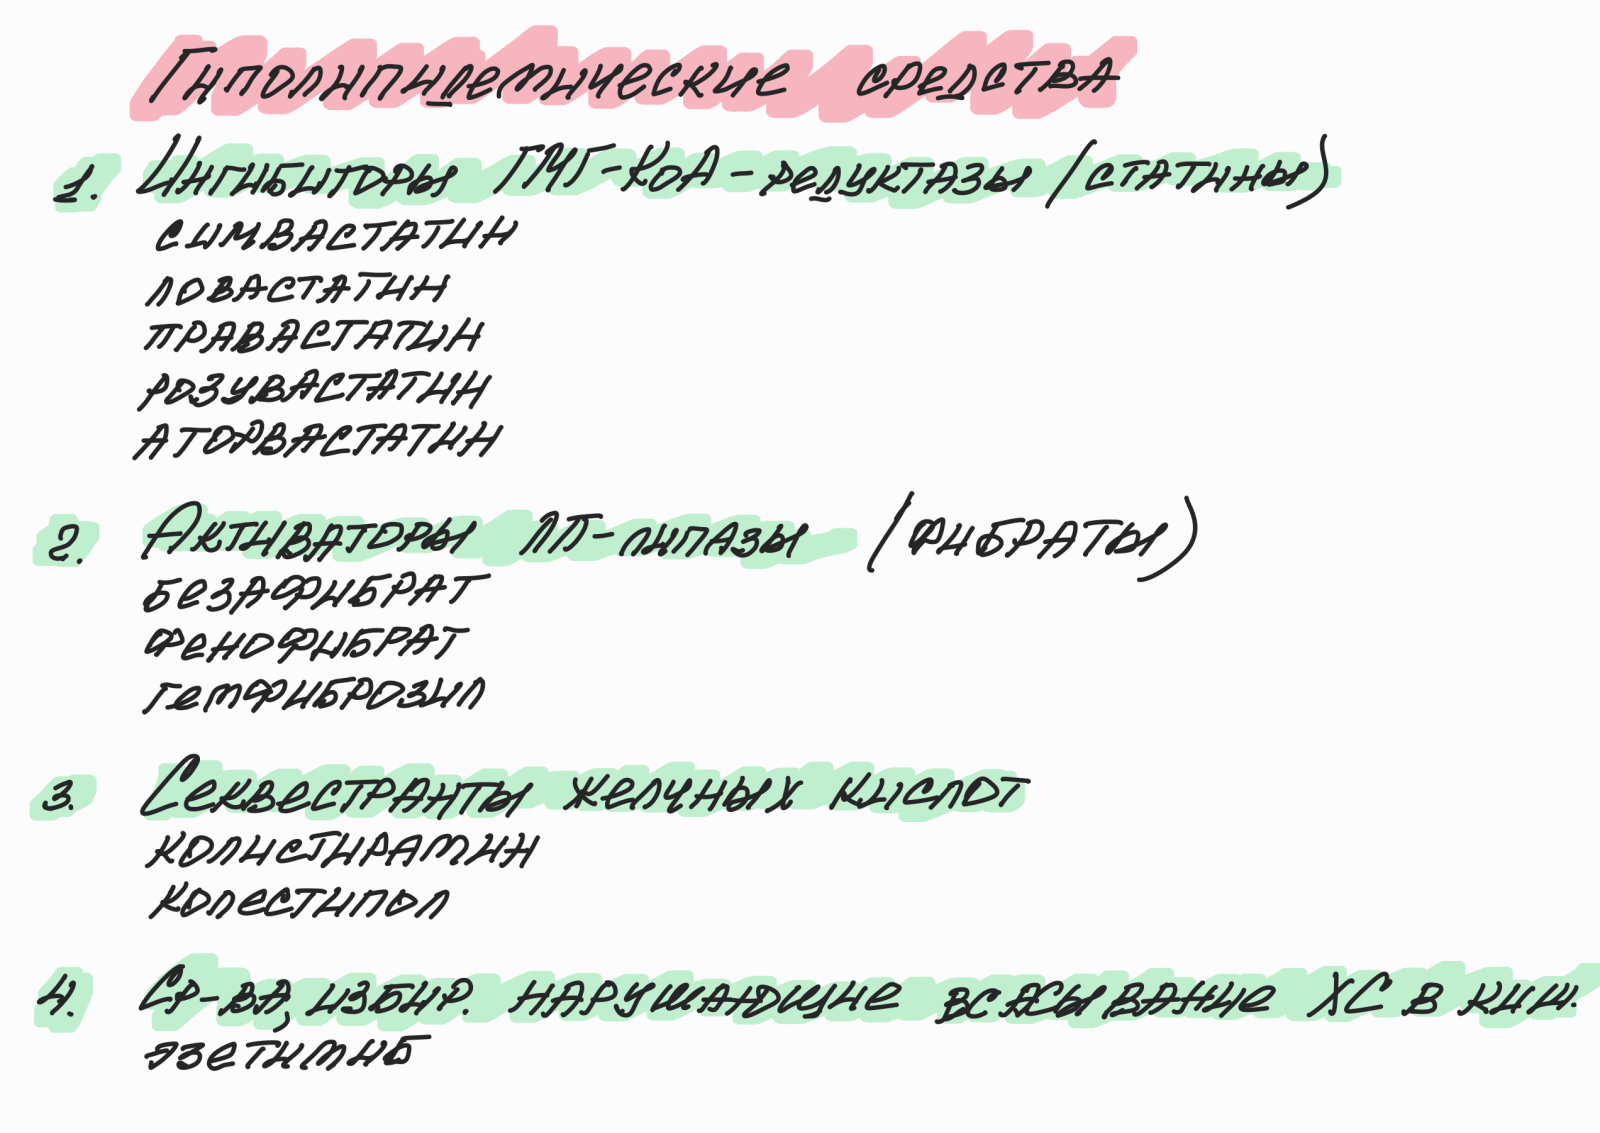 Гиполипидемические средства
1. Ингибиторы ГМГ-КоА-редуктазы (статины)
симвастатин
ловастатин
правастатин
розувастатин
аторвастатин
2. Активаторы ЛП-липазы (фибраты)
безафибрат
фенофибрат
гемфиброзил
3. Секвестранты желчных кислот
колистирамин
колестипол
4. Ср-ва, избир. нарушающие всасывание ХС в киш.
эзетимиб